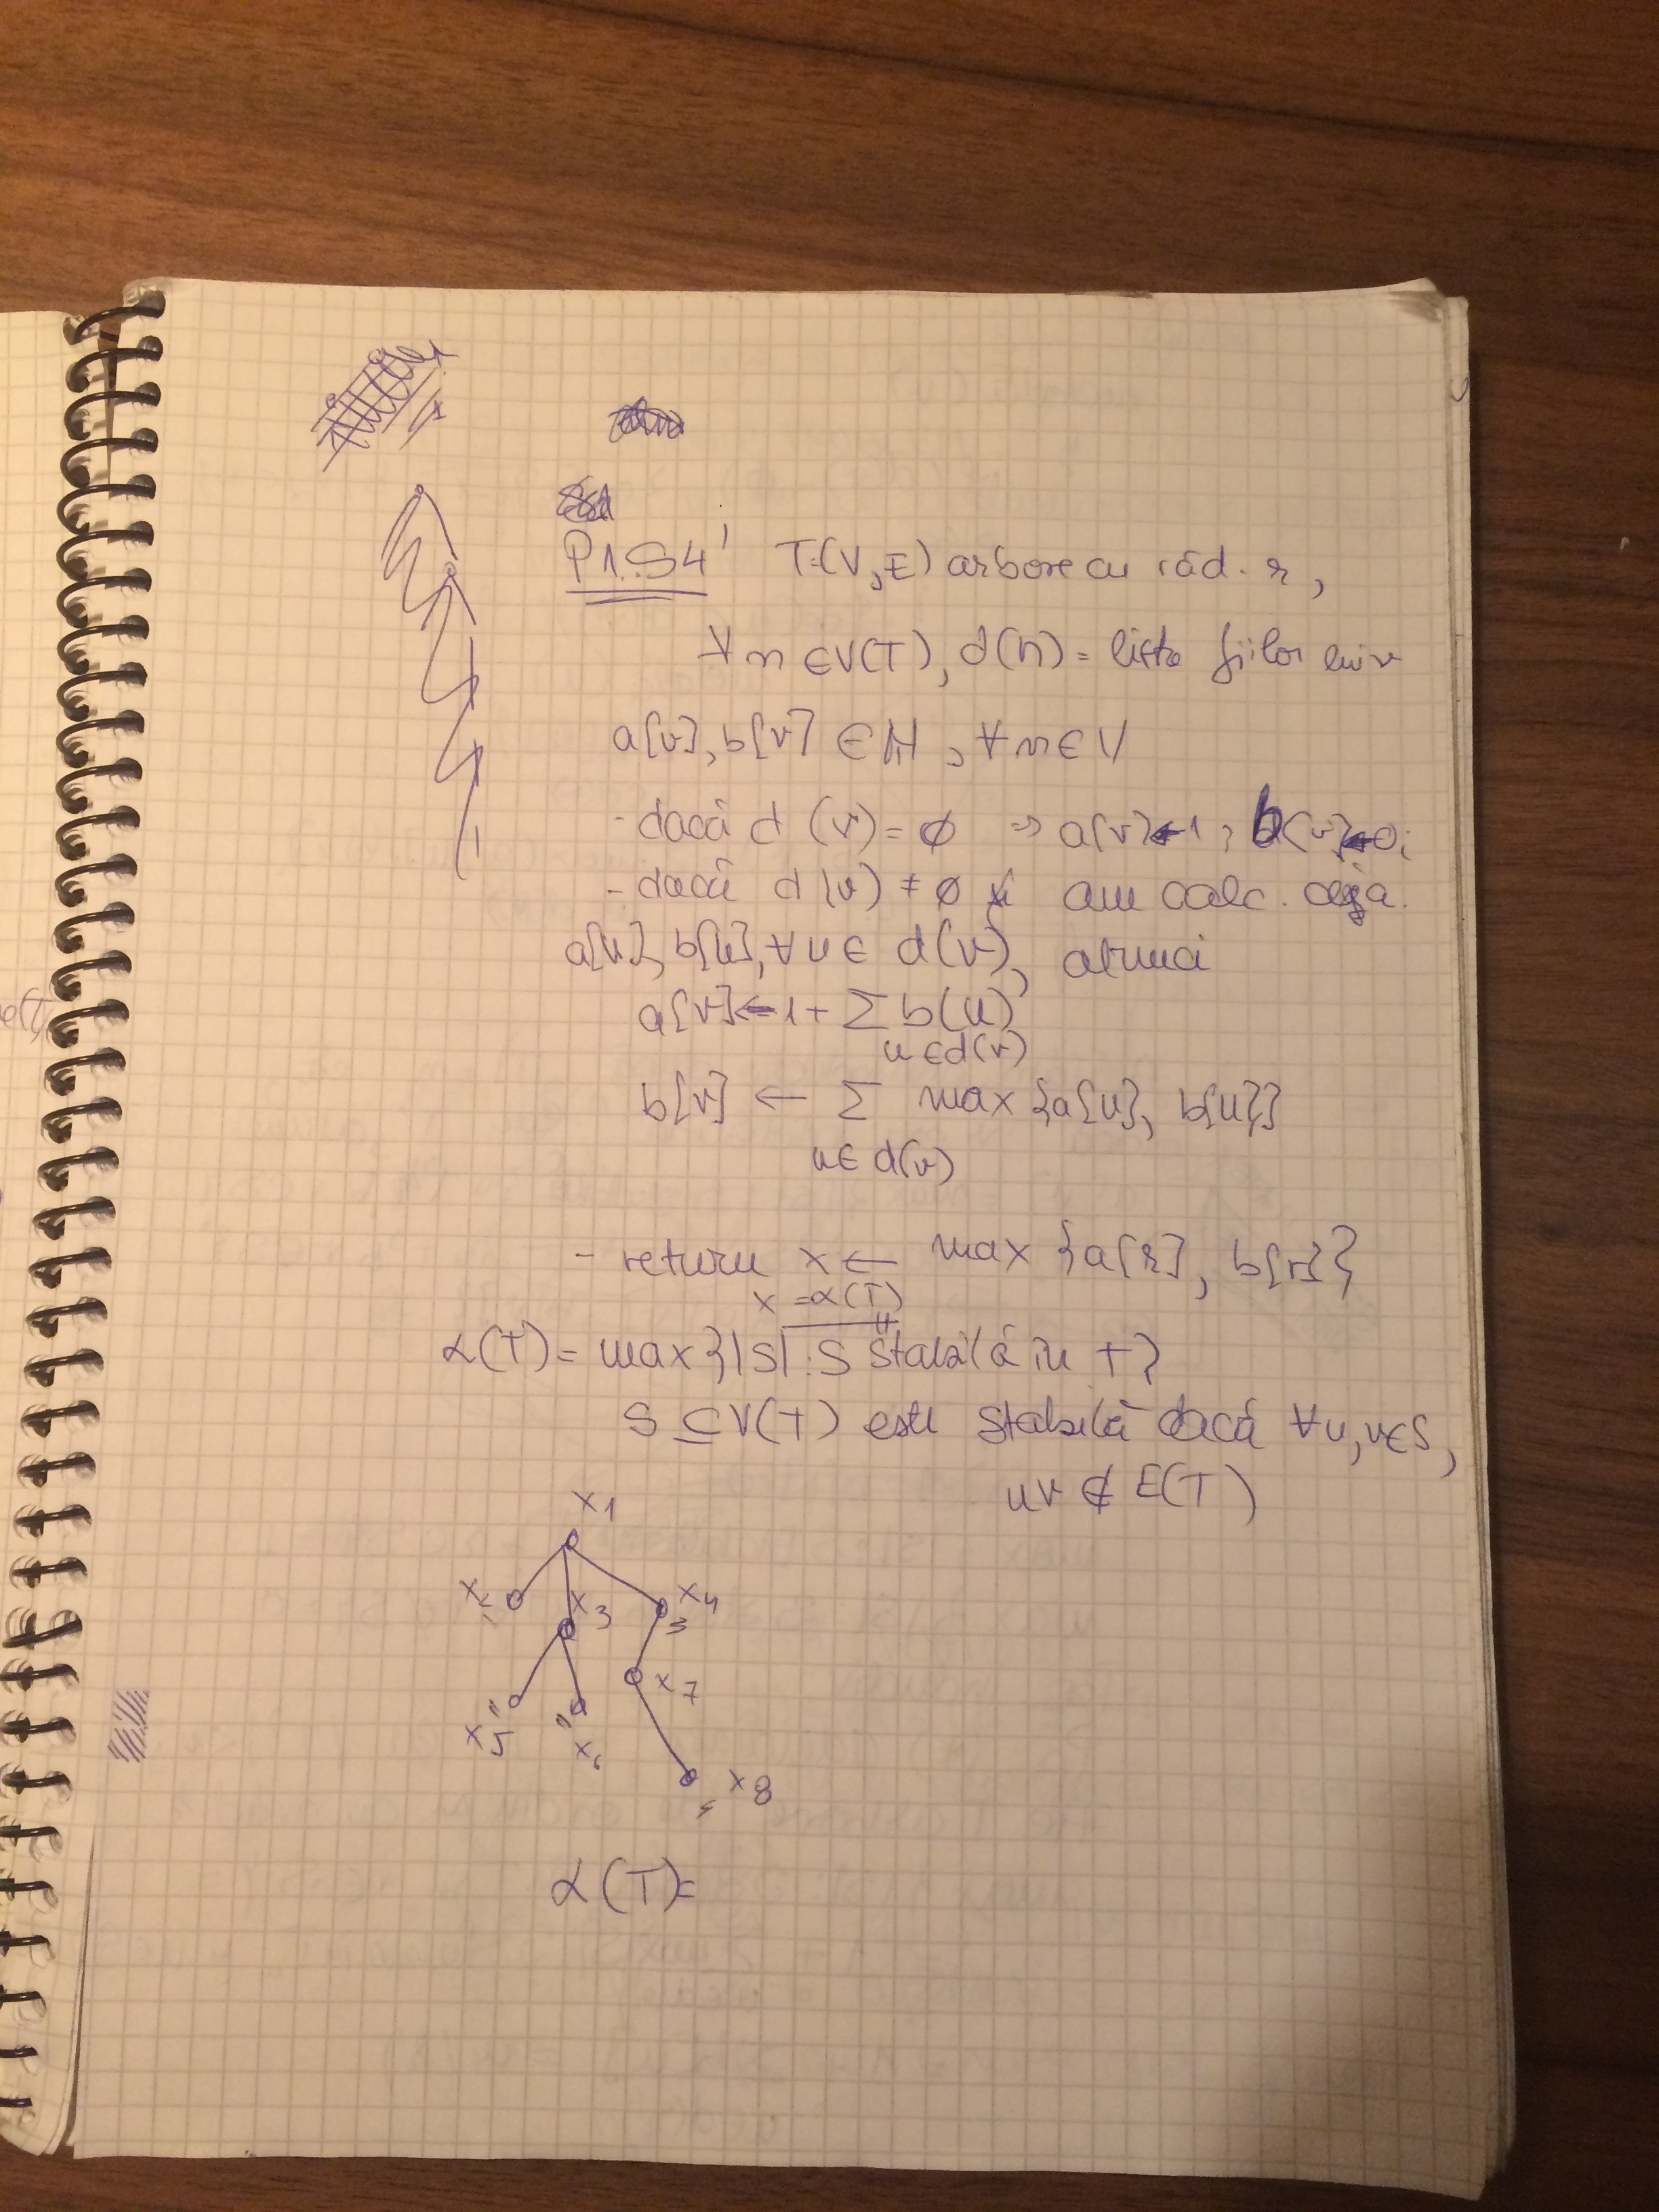 P1.S4' T=(V,E) arbore cu răd. r,
∀ v ∈ V(T), d(v) = lista fiilor lui v
a[v], b[v] ∈ ℕ, ∀ v ∈ V
- dacă d(v) = ∅ ⇒ a[v] ← 1, b[v] ← 0;
- dacă d(v) ≠ ∅ și am calc. deja
a[u], b[u], ∀ u ∈ d(v), atunci
a[v] ← 1 + Σ b(u)
u ∈ d(v)
b[v] ← Σ max {a[u], b[u]}
u ∈ d(v)
- return x ← max {a[r], b[r]}
x = α(T)
α(T) = max {|S| : S stabilă în T}
S ⊆ V(T) este stabilă dacă ∀ u, v ∈ S,
uv ∉ E(T)
x1
x3 x4
x7
x5 x6
x8
α(T) =